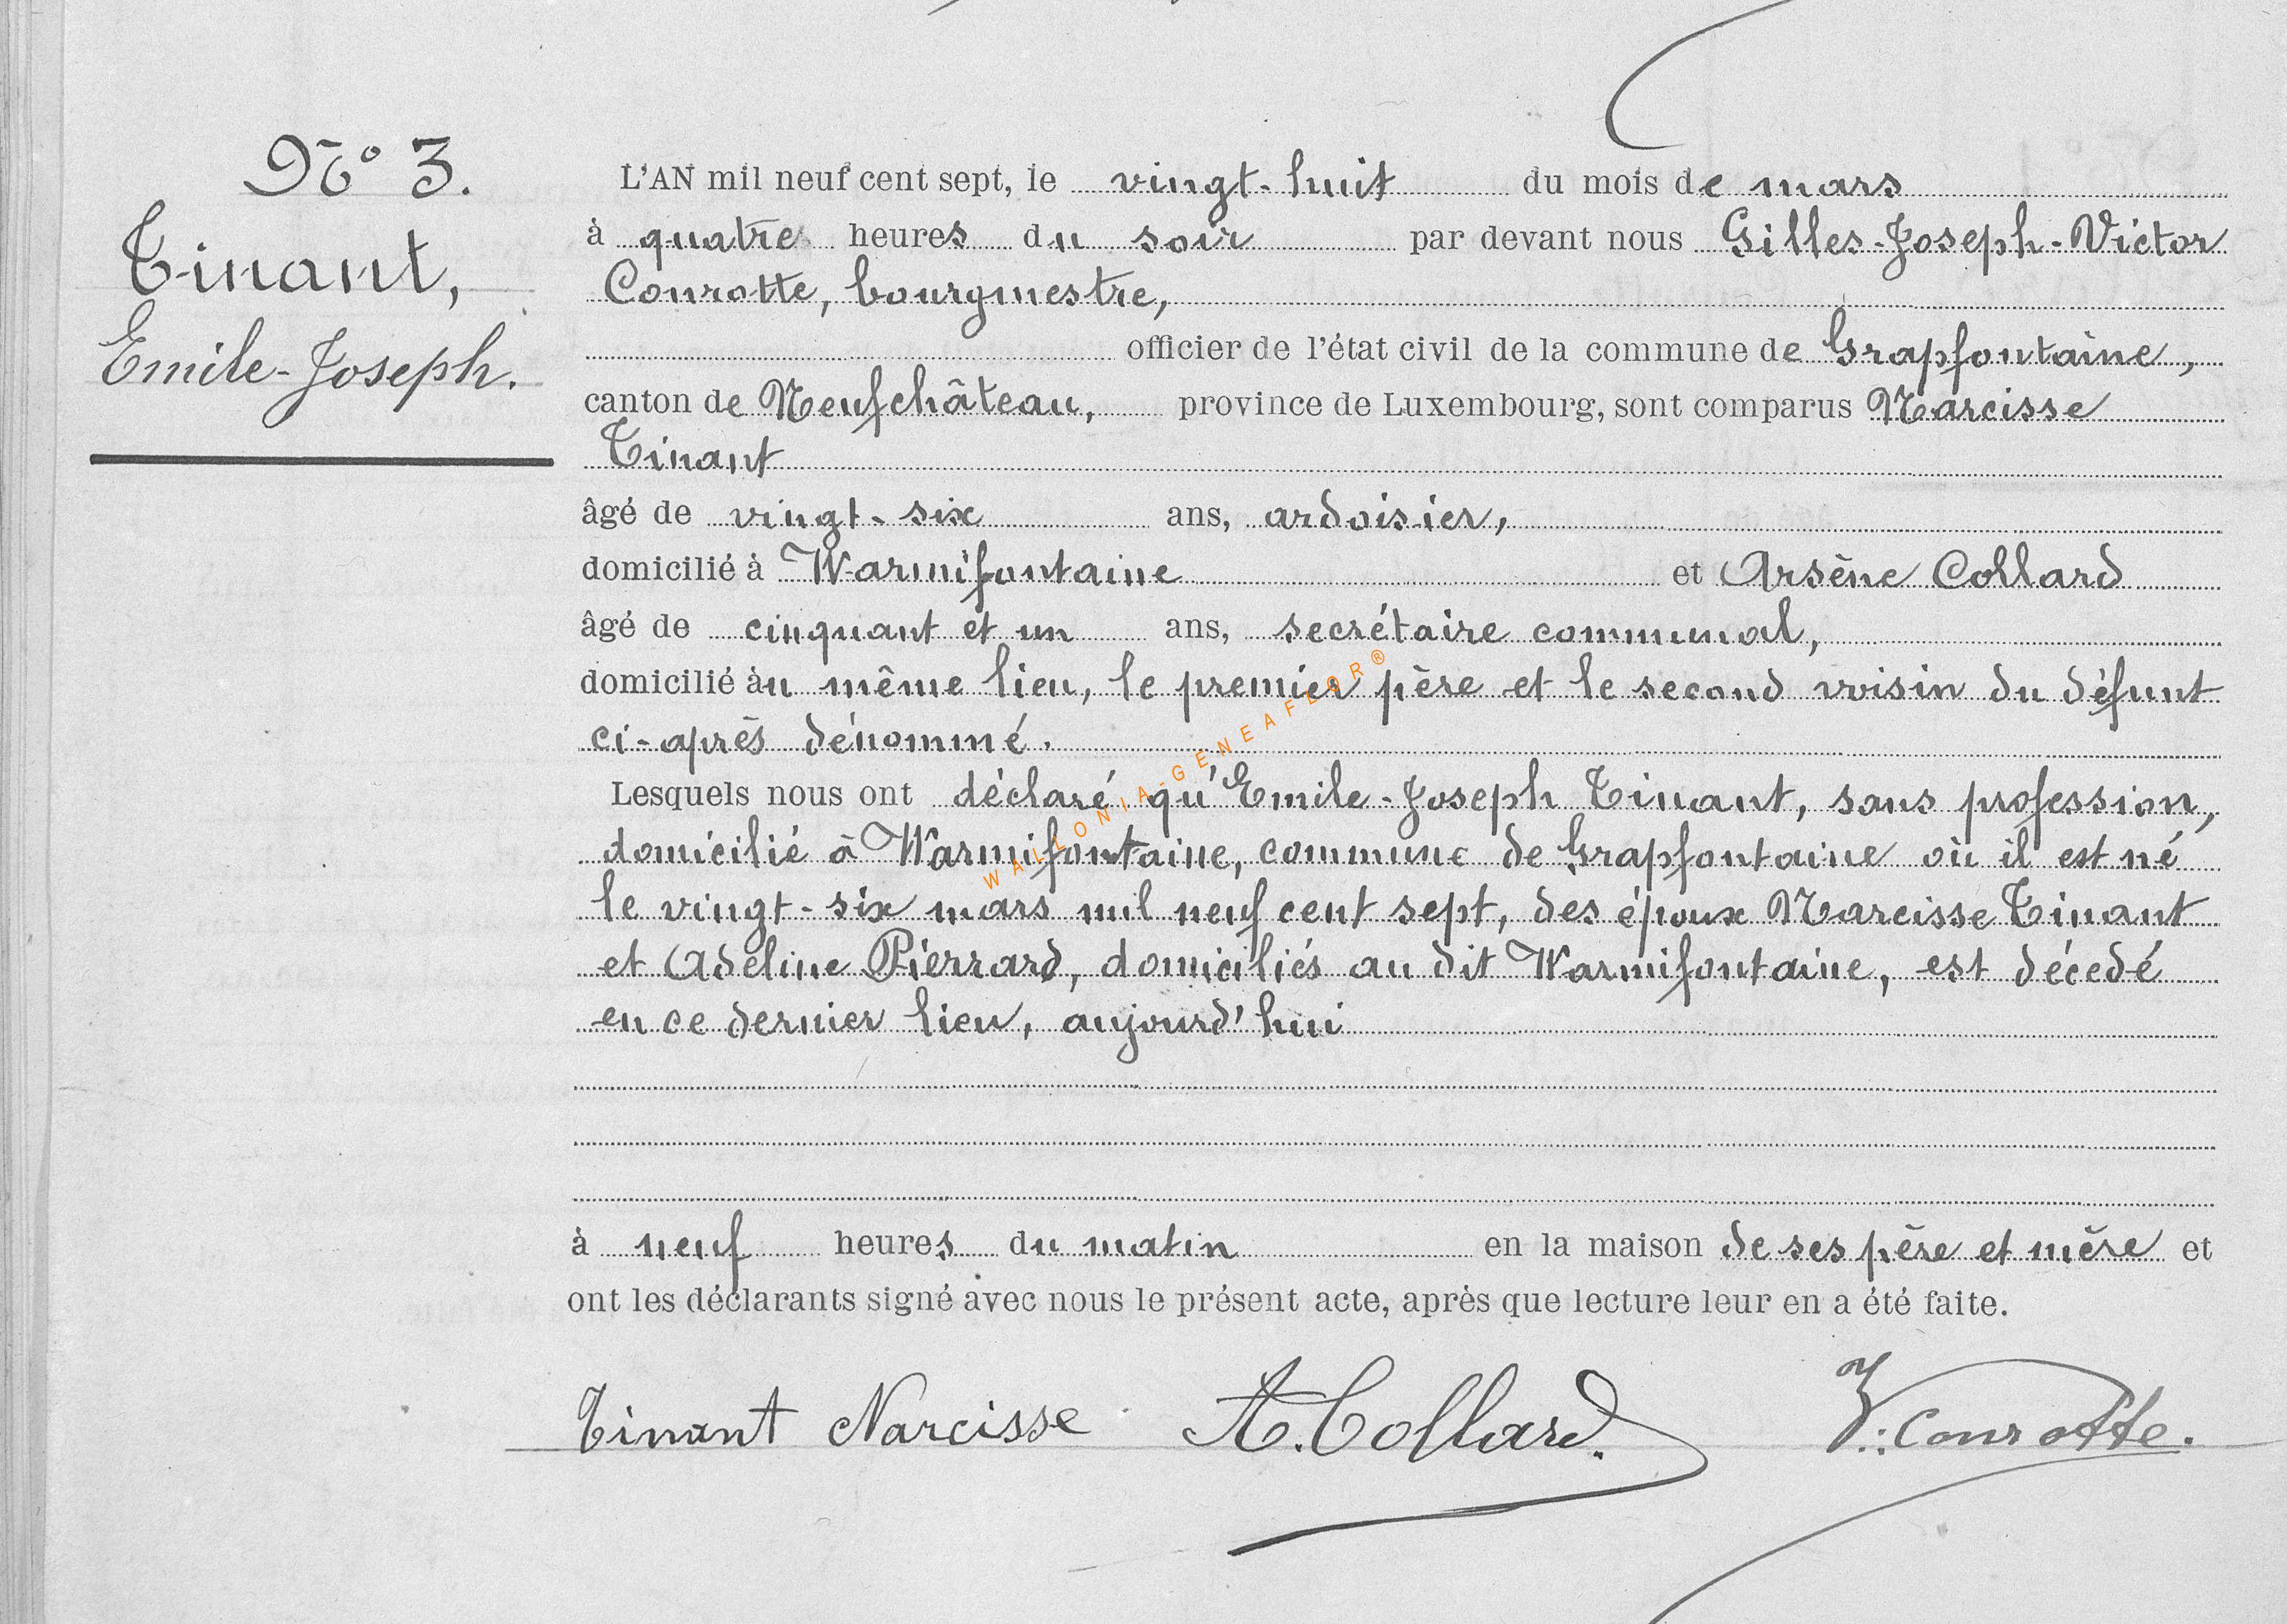 N° 3.
Tinant,
Emile-Joseph.
L'AN mil neuf cent sept, le vingt-huit du mois de mars
à quatre heures du soir par devant nous Gilles-Joseph-Victor
Conrotte, bourgmestre,
officier de l'état civil de la commune de Grapfontaine,
canton de Neufchâteau, province de Luxembourg, sont comparus Narcisse
Tinant
âgé de vingt-six ans, ardoisier,
domicilié à Warmifontaine et Arsène Collard
âgé de cinquant et un ans, secrétaire communal,
domicilié àu même lieu, le premier père et le second voisin du défunt
ci-après dénommé.
Lesquels nous ont déclaré qu'Emile-Joseph Tinant, sans profession,
domicilié à Warmifontaine, commune de Grapfontaine où il est né
le vingt-six mars mil neuf cent sept, des époux Narcisse Tinant
et Adeline Pierrard, domiciliés au dit Warmifontaine, est décedé
en ce dernier lieu, aujourd'hui
à neuf heures du matin en la maison de ses père et mère et
ont les déclarants signé avec nous le présent acte, après que lecture leur en a été faite.
Tinant Narcisse A. Collard. V. Conrotte.
WALLONIA-GENEAFLOR®